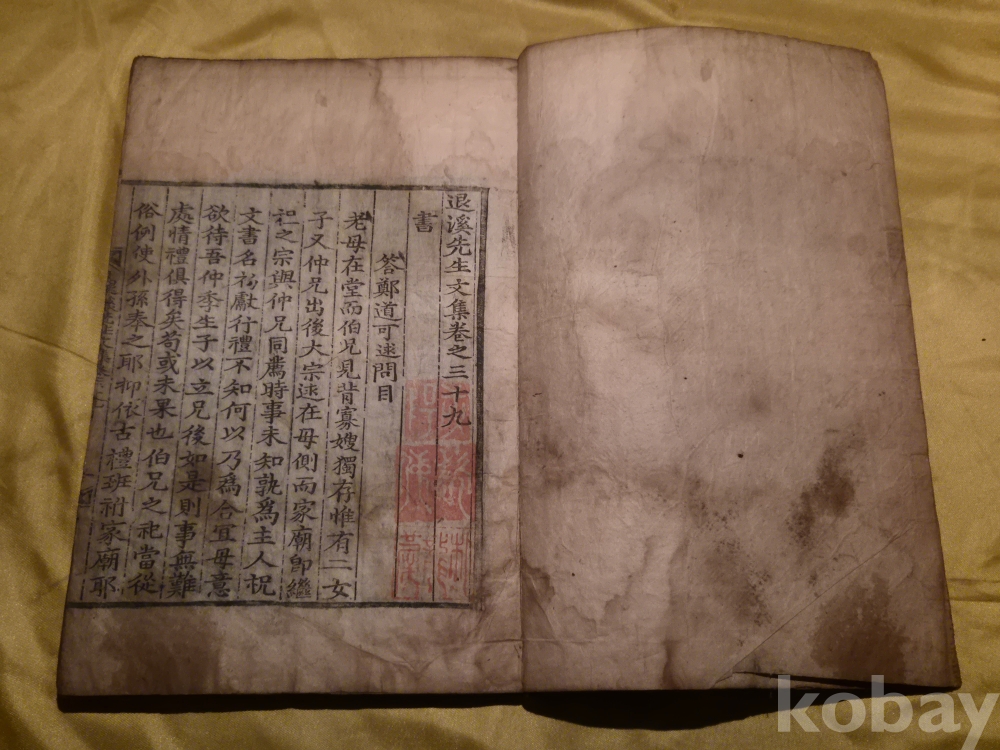 退溪先生文集卷之三十九
書
答鄭道可逑問目
老母在堂而伯兄見背寡嫂獨存惟有二女
子又仲兄出後大宗逑在母側而家廟卽繼
祀之宗與仲兄同薦時事未知孰爲主人祝
文書名初獻行禮不知何以乃爲合宜母意
欲待吾仲季生子以立兄後如是則事無難
處情禮俱得矣苟或未果也伯兄之祀當從
俗例使外孫奉之耶抑依古禮班祔家廟耶
kobay